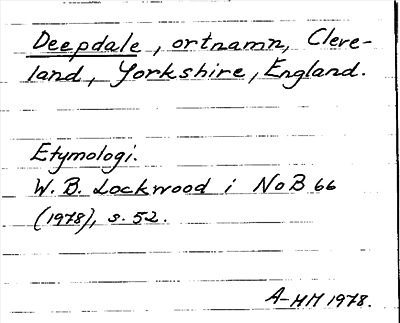 Deepdale, ortnamn, Cleve-
land, Yorkshire, England.
Etymologi.
W. B. Lockwood i NoB 66
(1978), s. 52.
A-HM 1978.